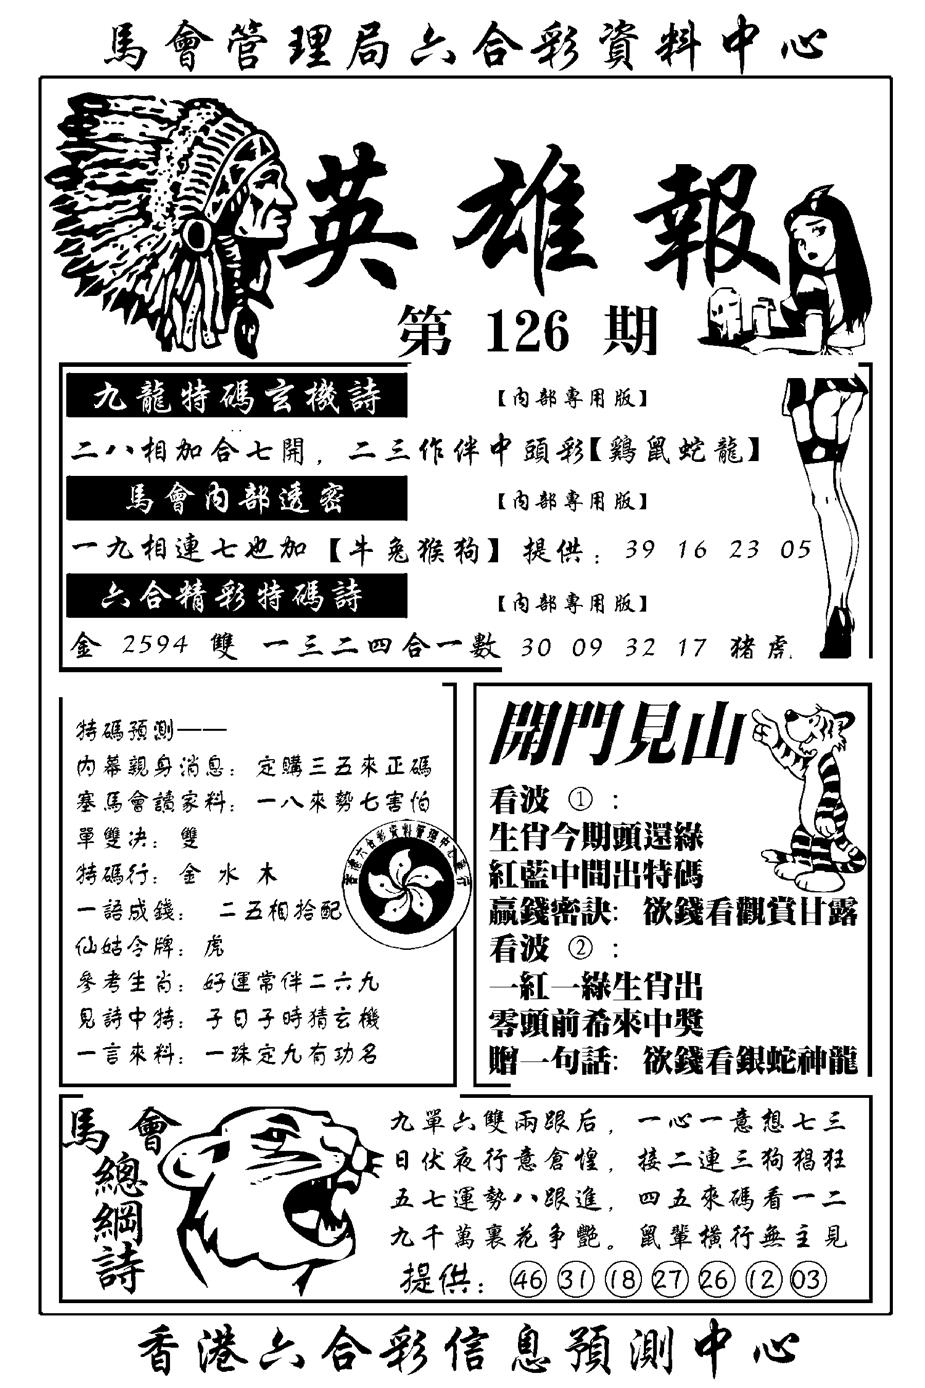 馬會管理局六合彩資料中心
英雄報
第 126 期
九龍特碼玄機詩 【內部專用版】
二八相加合七開，二三作伴中頭彩【鷄鼠蛇龍】
馬會內部透密 【內部專用版】
一九相連七也加【牛兔猴狗】提供：39 16 23 05
六合精彩特碼詩 【內部專用版】
金 2594 雙 一三二四合一數 30 09 32 17 猪虎.
特碼預測——
內幕親身消息：定購三五來正碼
塞馬會讀家料：一八來勢七害怕
單雙决：雙
特碼行：金 水 木
一語成錢： 二五相拾配
仙姑令牌：虎
參考生肖：好運常伴二六九
見詩中特：子日子時猜玄機
一言來料：一珠定九有功名
開門見山
看波 ①：
生肖今期頭還綠
紅藍中間出特碼
贏錢密訣：欲錢看觀賞甘露
看波 ②：
一紅一綠生肖出
零頭前希來中獎
贈一句話：欲錢看銀蛇神龍
馬會
總綱詩
九單六雙兩跟后，一心一意想七三
日伏夜行意倉惶，接二連三狗猖狂
五七運勢八跟進，四五來碼看一二
九千萬裏花争艷。鼠輩橫行無主見
提供：㊻ ㉛ ⑱ ㉗ ㉖ ⑫ 03
香港六合彩信息預測中心